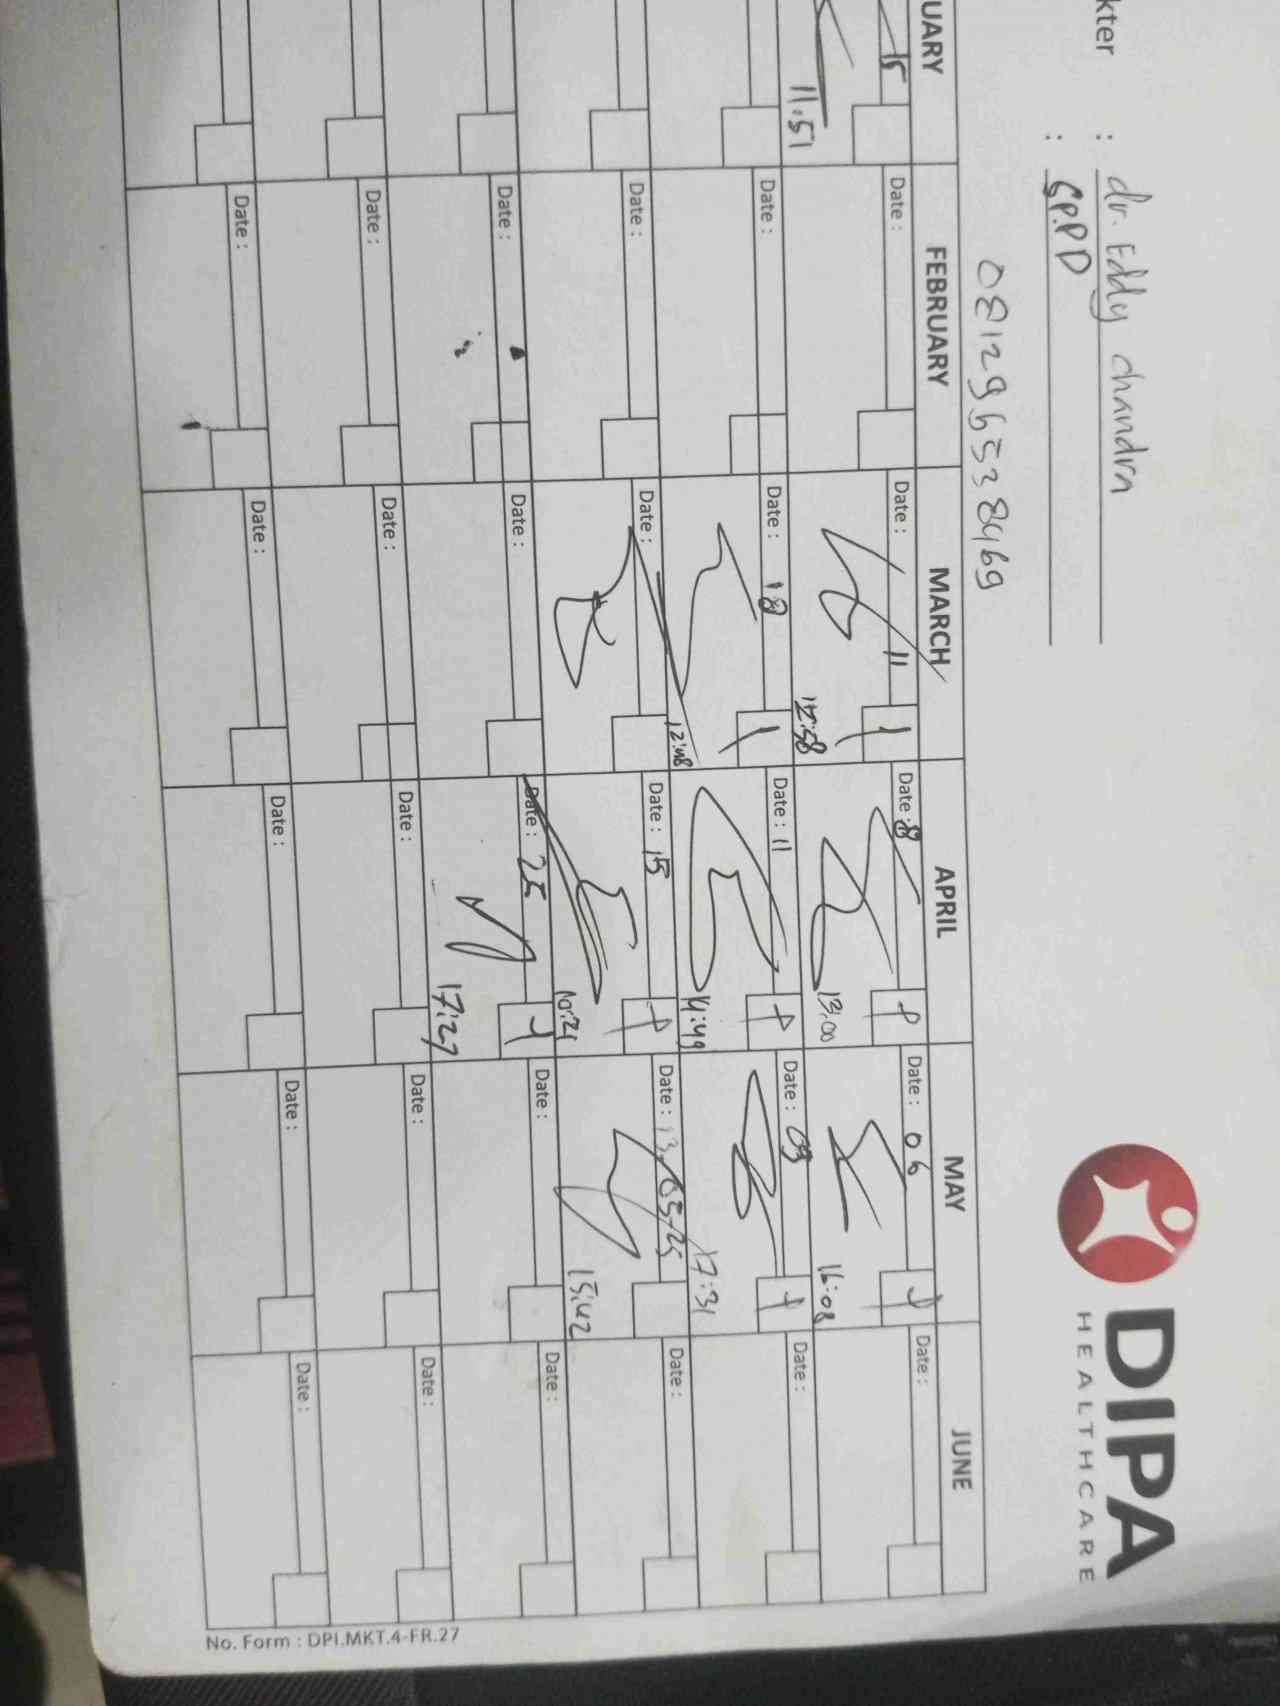 DIPA
HEALTHCARE
kter : dr. Eddy chandra
: SP.PD
081296538469
UARY FEBRUARY MARCH APRIL MAY JUNE
15 Date : Date : 11 Date : 8 Date : 06 Date :
11:51 13:00 16:08
Date : Date : 18 Date : 11 Date : 09 Date :
12:48 14:49 17:31
Date : Date : Date : 15 Date : 13/05/25 Date :
15:42
Date : Date : Date : 25 Date : Date :
17:27
Date : Date : Date : Date : Date :
Date : Date : Date : Date : Date :
No. Form : DPI.MKT.4-FR.27